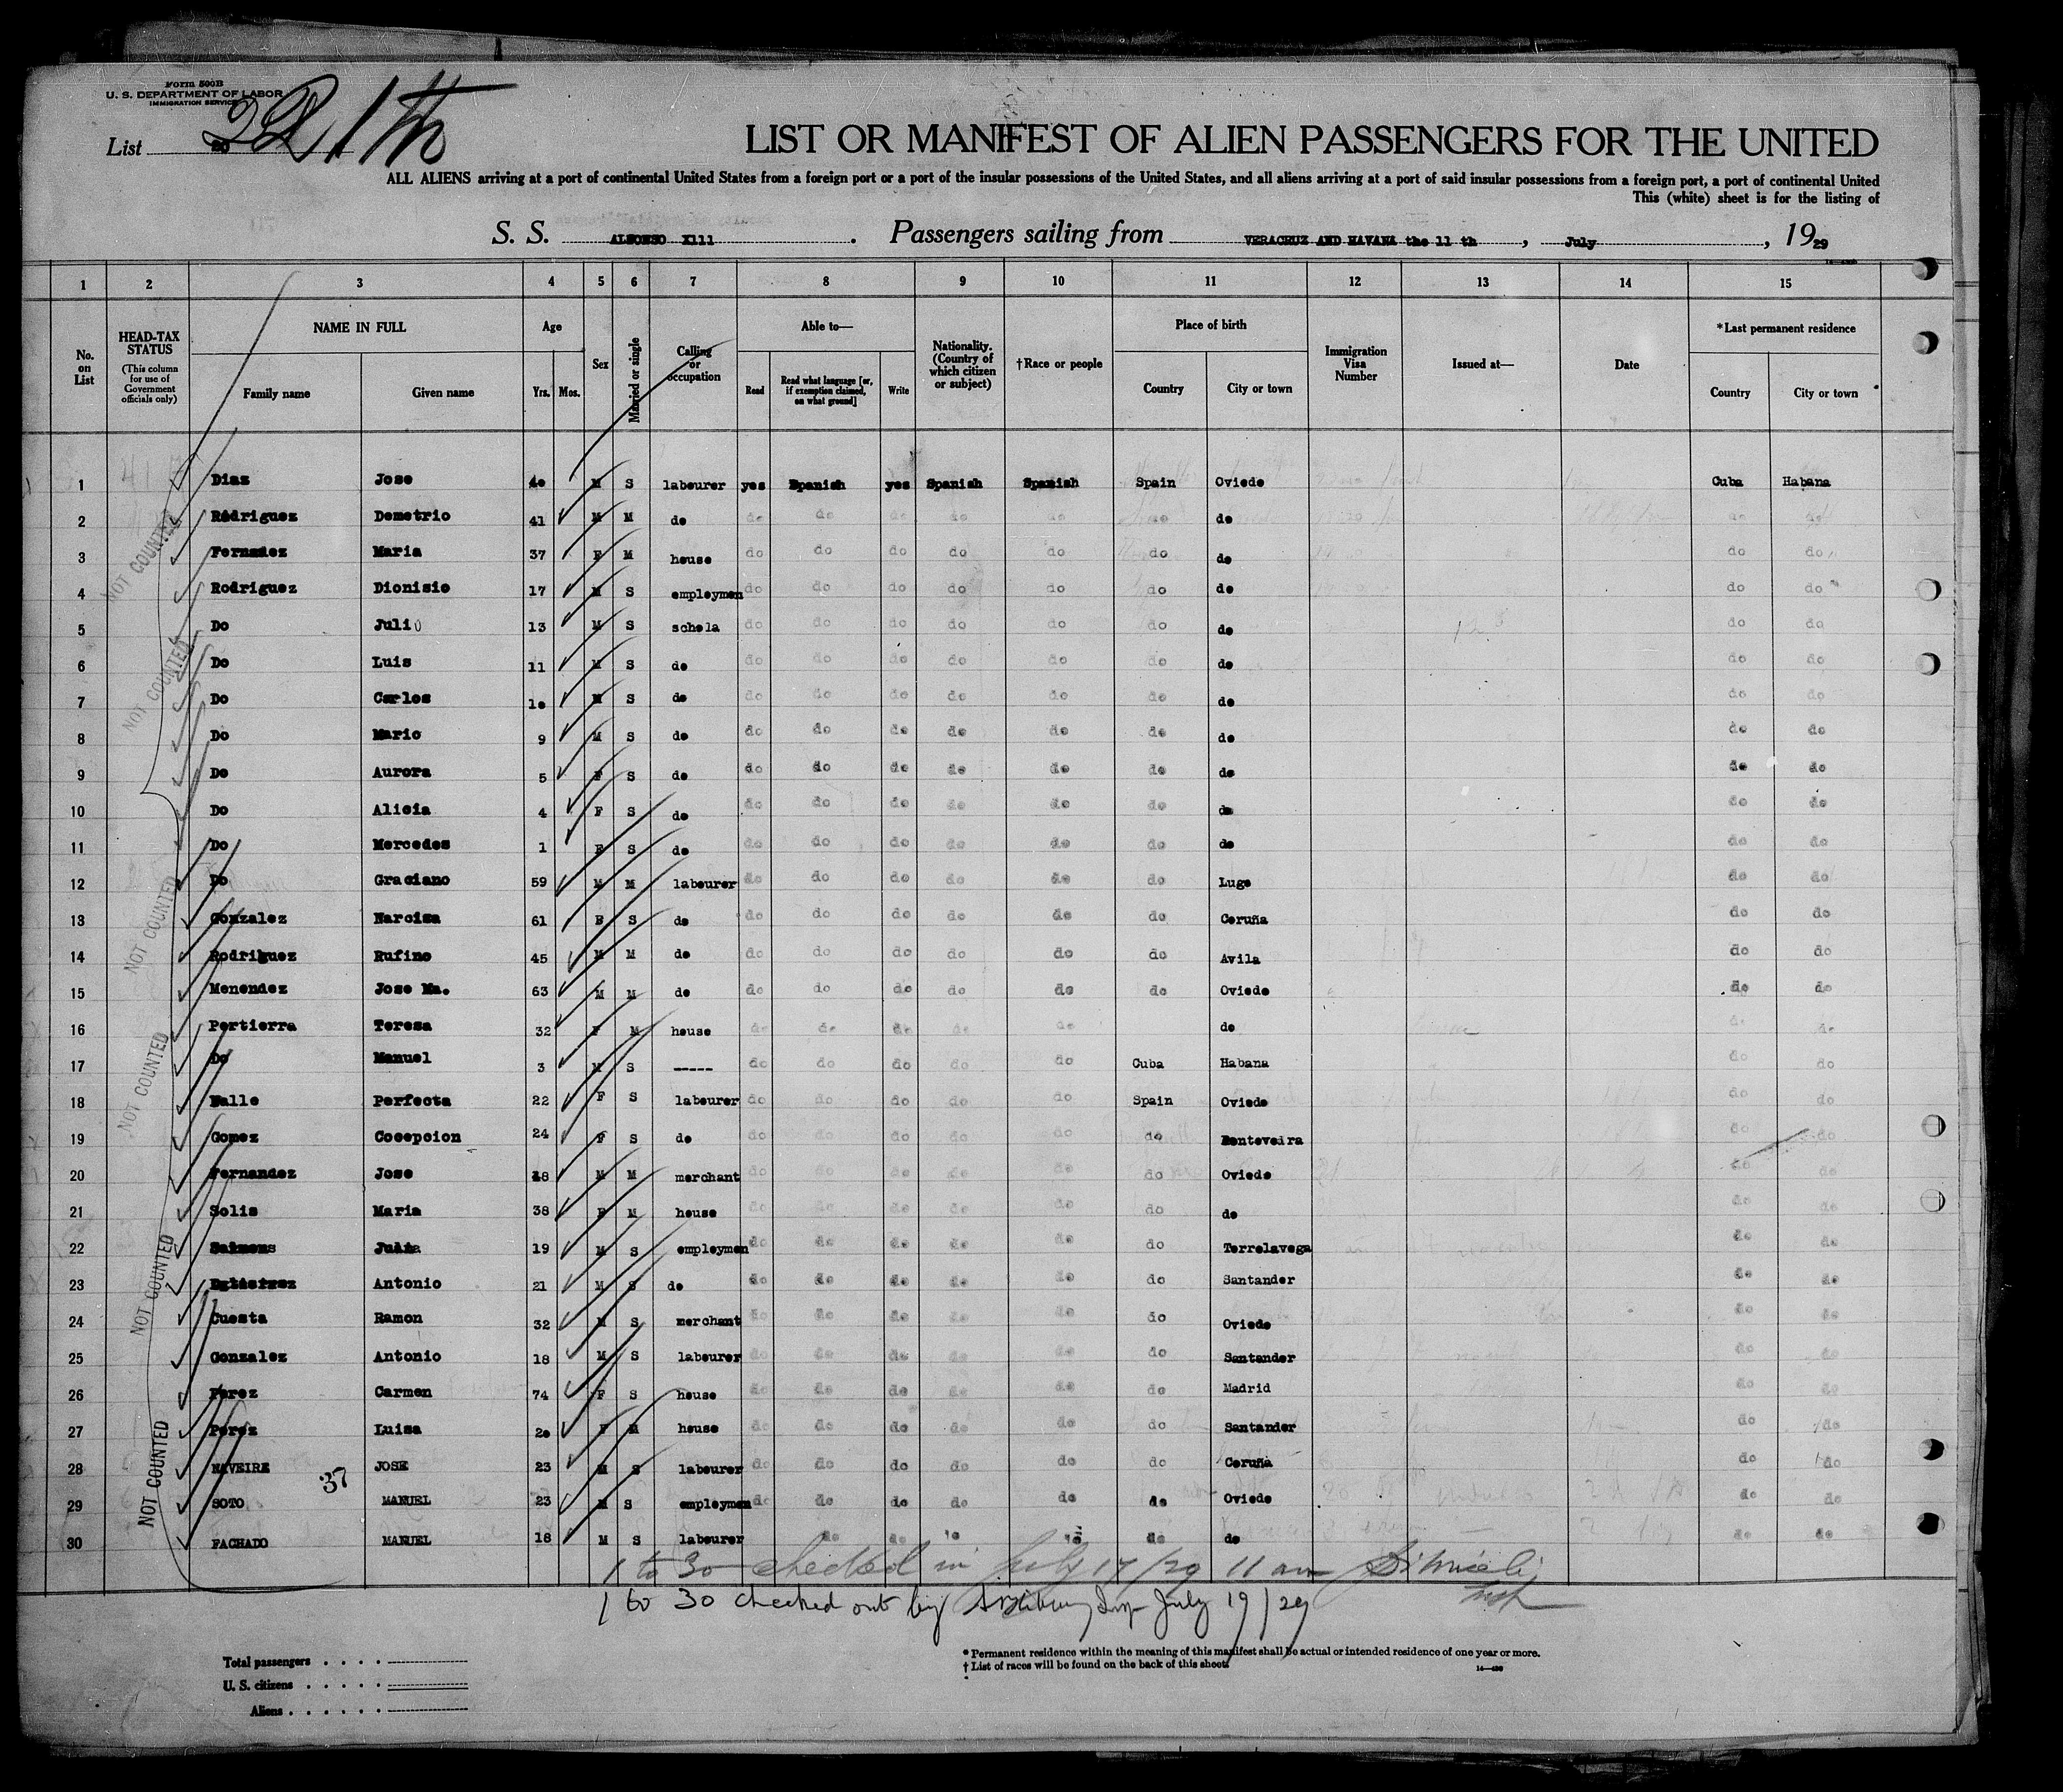 Form 500B
U. S. DEPARTMENT OF LABOR
IMMIGRATION SERVICE
List
LIST OR MANIFEST OF ALIEN PASSENGERS FOR THE UNITED
ALL ALIENS arriving at a port of continental United States from a foreign port or a port of the insular possessions of the United States, and all aliens arriving at a port of said insular possessions from a foreign port, a port of continental United
This (white) sheet is for the listing of
S. S. ALFONSO X111 . Passengers sailing from VERACRUZ AND HAVANA the 11 th , July , 1929
1 2 3 4 5 6 7 8 9 10 11 12 13 14 15
No. on List
HEAD-TAX STATUS
(This column for use of Government officials only)
NAME IN FULL
Family name Given name
Age
Yrs. Mos.
Sex
Married or single
Calling or occupation
Able to—
Read
Read what language [or, if exemption claimed, on what ground]
Write
Nationality. (Country of which citizen or subject)
†Race or people
Place of birth
Country City or town
Immigration Visa Number
Issued at—
Date
*Last permanent residence
Country City or town
1 Diaz Jose 4o M S labourer yes Spanish yes Spanish Spanish Spain Oviedo Cuba Habana
2 Rodriguez Demetrio 41 M M do do do do do do do do do do
3 Fernadez Maria 37 F M house do do do do do do do do do
4 Rodriguez Dionisio 17 M S employmen do do do do do do do do do
5 Do Julio 13 M S schola do do do do do do do do do
6 Do Luis 11 M S do do do do do do do do do do
7 Do Carlos 1o M S do do do do do do do do do do
8 Do Mario 9 M S do do do do do do do do do do
9 Do Aurora 5 F S do do do do do do do do do do
10 Do Alicia 4 F S do do do do do do do do do do
11 Do Mercedes 1 F S do do do do do do do do do do
12 Do Graciano 59 M M labourer do do do do do do Lugo do do
13 Gonzalez Narcisa 61 F S do do do do do do do Coruña do do
14 Rodriguez Rufino 45 M M do do do do do do do Avila do do
15 Menendez Jose Ma. 63 M M do do do do do do do Oviedo do do
16 Pertierra Teresa 32 F M house do do do do do do do do
17 Do Manuel 3 M S ----- do do do do do Cuba Habana do do
18 Valle Perfecta 22 F S labourer do do do do do Spain Oviedo do do
19 Gomez Cocepcion 24 F S do do do do do do do Ponteveira do do
20 Fernandez Jose 48 M M merchant do do do do do do Oviedo do do
21 Solis Maria 38 F M house do do do do do do do do do
22 19 M S employmen do do do do do do Torrelavega do do
23 Antonio 21 M S do do do do do do do Santander do do
24 Cuesta Ramon 32 M S merchant do do do do do do Oviedo do do
25 Gonzalez Antonio 18 M S labourer do do do do do do Santander do do
26 Perez Carmen 74 F S house do do do do do do Madrid do do
27 Perez Luisa 2o F M house do do do do do do Santander do do
28 NAVEIRA JOSE 23 M S labourer do do do do do do Coruña do do
29 SOTO MANUEL 23 M S employmen do do do do do do Oviedo do do
30 FACHADO MANUEL 18 M S labourer do do do do do do do do
37
NOT COUNTED
NOT COUNTED
NOT COUNTED
NOT COUNTED
NOT COUNTED
NOT COUNTED
1 to 30 checked in July 17/29 11 am
1 to 30 checked out by Insp July 19/29
Total passengers
U. S. citizens
Aliens
* Permanent residence within the meaning of this manifest shall be actual or intended residence of one year or more.
† List of races will be found on the back of this sheet.